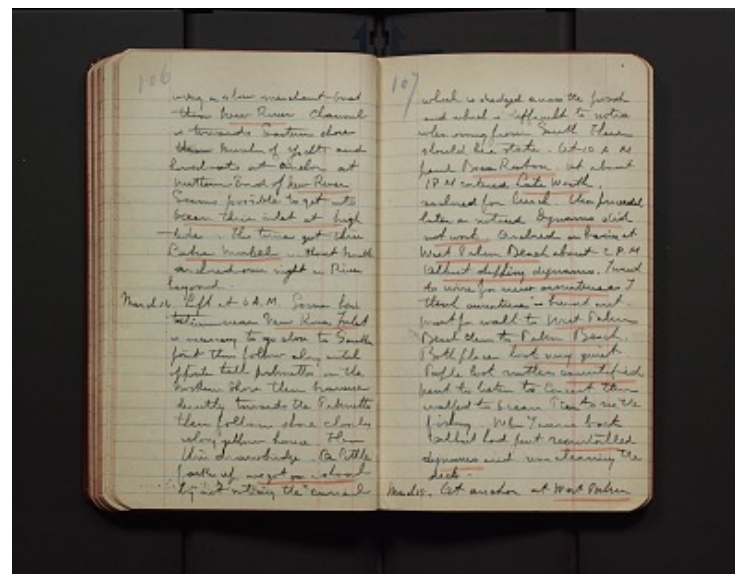 106
using a slow merchant boat
then New River Channel
is towards Eastern shore
Number of yachts and
houseboats at anchor at
northern End of New River.
Seems possible to get into
Ocean thru inlet at high
tide. The turns got thru
Lake Mabel about
anchored over night in River
beyond.
March 16. Left at 6 A.M. Some
near New River Inlet
is necessary to go close to South
point then follow along until
opposite tall palmetto on the
northern shore then
directly towards the Palmetto
then follow shore closely
along yellow house. Then
thru drawbridge. A little
further up we got on a shoal
by not noting the "canal
107
which is dredged across the
and which is difficult to notice
when coming from South. There
should be a stake. At 10 A M
passed Boca Raton. At about
1 P M entered Lake Worth,
anchored for lunch. Then proceeded
later on noticed dynamo did
not work. Anchored in basin at
West Palm Beach about 2 P.M
dynamo. I went
to wire for new armature as I
think armature is burned out.
Went for walk to West Palm
Beach then to Palm Beach.
Both places look very quiet
People look rather
went to listen to Concert then
walked to Ocean Pier to see the
fishing. When I came back
had just reinstalled
dynamo and was cleaning the
deck.
March 17. At anchor at West Palm